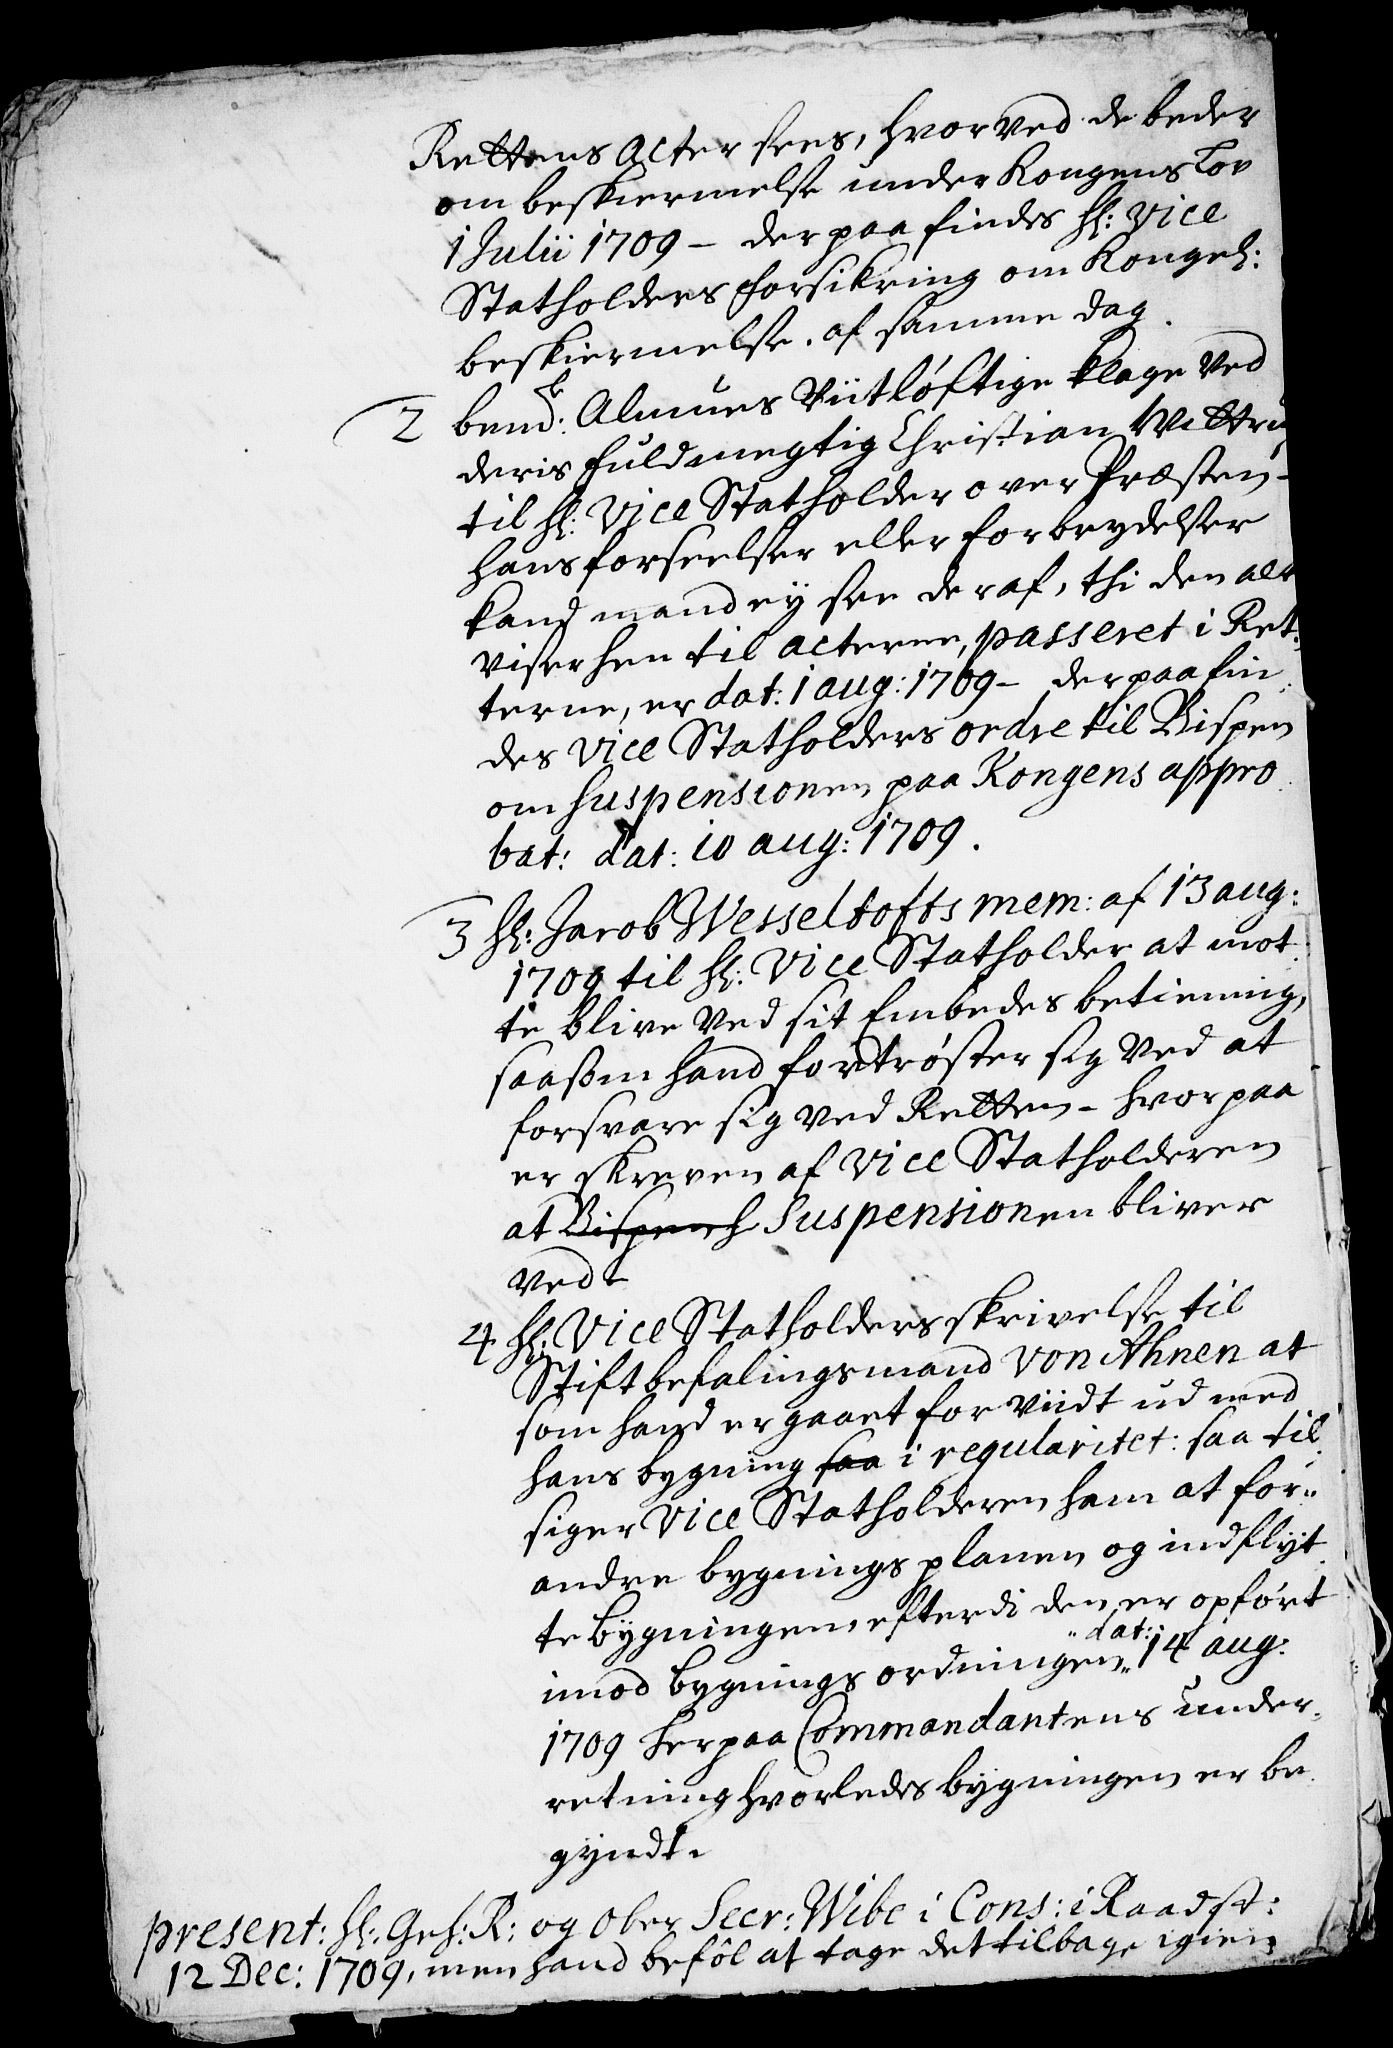 Rettens Acter sees, hvorved de beder
om beskiermelse under Kongens Lov
1 Julii 1709 - derpaa findes hl: Vice
Statholders forsikring om Kongel:
beskiermelse. af samme dag.
2 bemte: Almues Viitløftige klage Ved
deris fuldmegtig Christian
til hl: Vice Statholder over Præsten -
hans forseelser eller forbrydelser
kand mand ey see deraf, thi den alt
viser hen til acterne, passeret i Ret:
terne, er dat: 1 aug: 1709 - derpaa fin:
des Vice Statholders ordre til Bispen
om suspensionen paa Kongens appro
bat: dat: 10 aug: 1709.
3 hl: Jacob Wesseltofts mem: af 13 aug:
1709 til hl: Vice Statholder at mot:
te blive Ved sit Embedes betiening,
saasom hand fortrøster sig Ved at
forsvare sig ved Retten - hvorpaa
er skreven af Vice Statholderen
at Bispens Suspensionen bliver
ved.
4 hl: Vice Statholders skrivelse til
Stiftbefalingsmand Von Ahnen at
som hand er gaaet for Viidt ud med
hans bygning saa i regularitet: saa til:
siger Vice Statholderen ham at for:
andre bygnings planen og indflyt
te bygningen, efterdi den er opført
imod bygnings ordningen dat: 14 aug:
1709 herpaa Commandantens under:
retning hvorledes bygningen er be
gyndt.
present: hl: Geh: R: og Ober Secr: Wibe i Cons: i Raadst:
12 Dec: 1709, men hand befôl at tage det tilbage igien